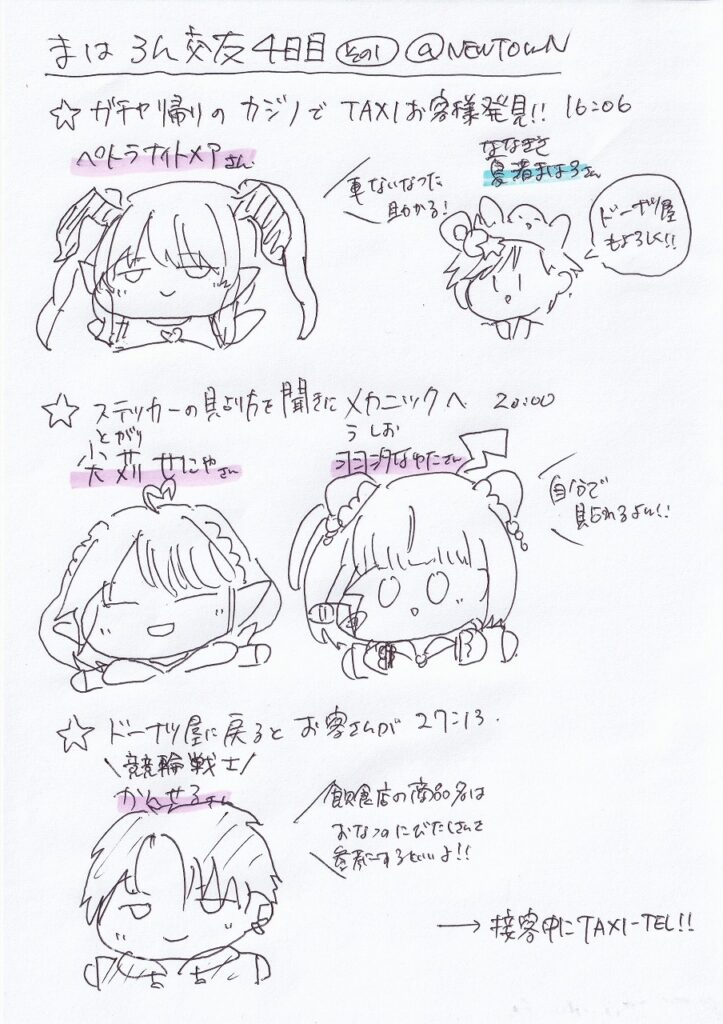 まはろん交友4日目 その1 @NEWTOWN
☆ ガチャ帰りのカジノでTAXIお客様発見!! 16:06
ペトラナイトメアさん
車ないなった
助かる!
ななきさ
夏渚まほろさん
ドーナツ屋
もよろしく!!
☆ ステッカーの貼り方を聞きにメカニックへ 20:00
とがり
尖苅 せにやさん
うしお
なゆたさん
自分で
貼れるよん!!
☆ ドーナツ屋に戻るとお客さんが 27:13.
\競輪戦士/
かんせるさん
飲食店の商品名は
おなつのにびたしさんを
参考にするといいよ!!
→ 接客中にTAXI-TEL!!